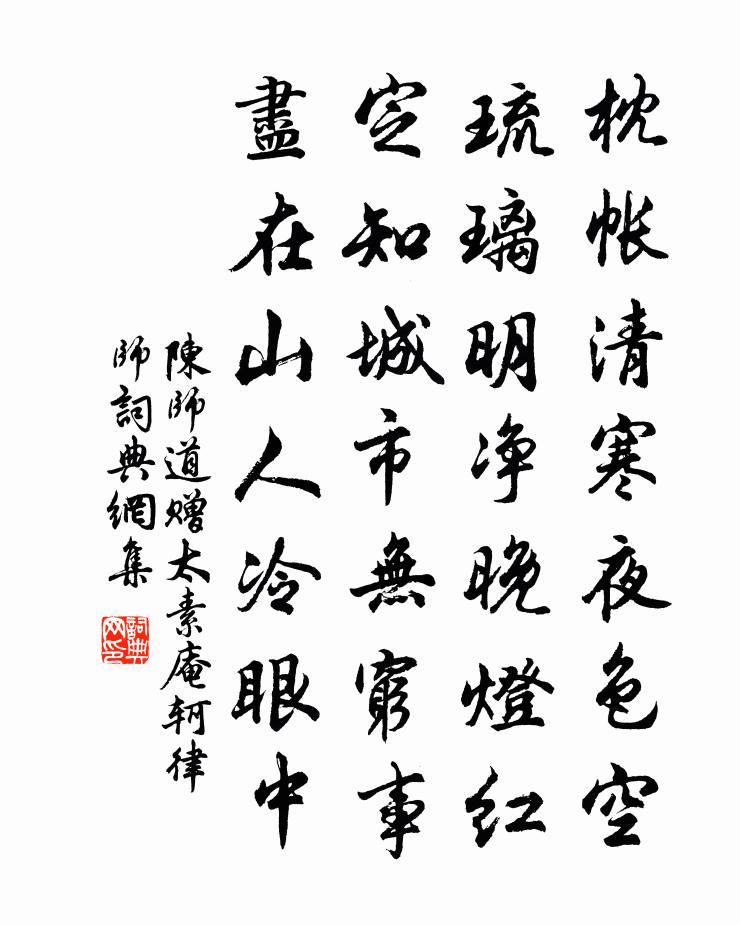 枕帳清寒夜色空
琉璃明净晚燈紅
定知城市無窮事
盡在山人冷眼中
陳師道贈太素庵軻律
師詞典網集
詞典网印